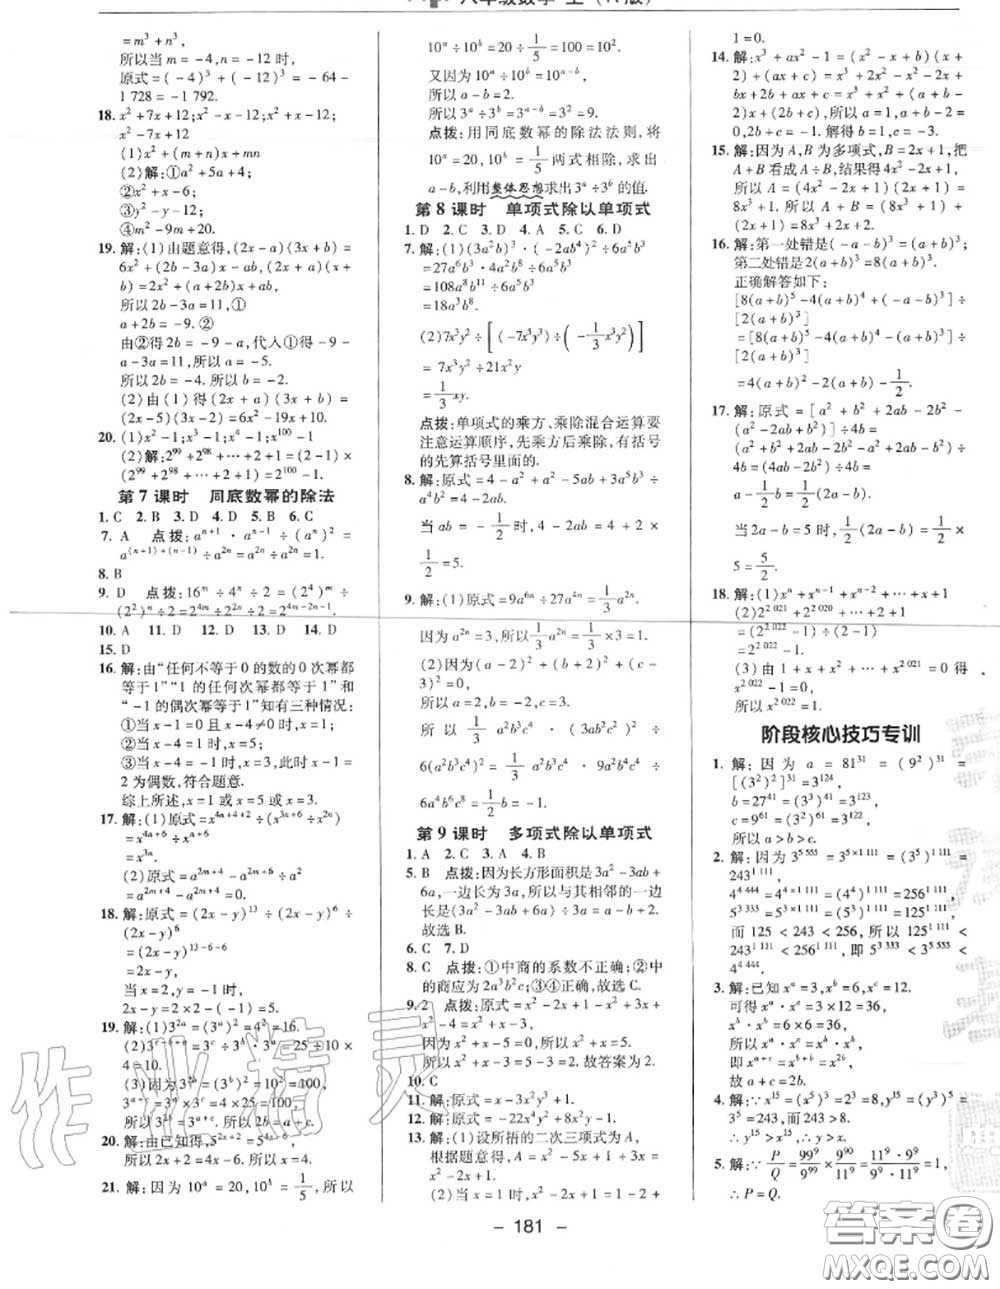 八年级数学 上(R版)
=m³+n³,
所以当 m=-4,n=-12 时,
原式=(-4)³+(-12)³=-64-
1 728=-1 792.
18. x²+7x+12;x²-x-12;x²+x-12;
x²-7x+12
(1)x²+(m+n)x+mn
(2)解:①a²+5a+4;
②x²+x-6;
③y²-y-12;
④m²-9m+20.
19. 解:(1)由题意得,(2x-a)(3x+b)=
6x²+(2b-3a)x-ab,(2x+a)(x+
b)=2x²+(a+2b)x+ab,
所以2b-3a=11,①
a+2b=-9.②
由②得2b=-9-a,代入①得-9-
a-3a=11,所以a=-5.
所以2b=-4.所以b=-2.
(2)由(1)得(2x+a)(3x+b)=
(2x-5)(3x-2)=6x²-19x+10.
20. (1)x²-1;x³-1;x⁴-1;x¹⁰⁰-1
(2)解:2⁹⁹+2⁹⁸+…+2+1=(2-1)×
(2⁹⁹+2⁹⁸+…+2+1)=2¹⁰⁰-1.
第7课时 同底数幂的除法
1. C 2. B 3. D 4. D 5. B 6. C
7. A 点拨:aⁿ⁺¹·aⁿ⁻¹÷(aⁿ)²=
a⁽ⁿ⁺¹⁾⁺⁽ⁿ⁻¹⁾÷a²ⁿ=a²ⁿ÷a²ⁿ=1.
8. B
9. D 点拨:16ᵐ÷4ⁿ÷2=(2⁴)ᵐ÷
(2²)ⁿ÷2=2⁴ᵐ÷2²ⁿ÷2=2⁴ᵐ⁻²ⁿ⁻¹.
10. A 11. D 12. D 13. D 14. D
15. D
16. 解:由“任何不等于0的数的0次幂都
等于1”“1的任何次幂都等于1”和
“-1的偶次幂等于1”知有三种情况:
①当x-1=0且x-4≠0时,x=1;
②当x-4=1时,x=5;
③当x-4=-1时,x=3,此时x-1=
2为偶数,符合题意.
综上所述,x=1或x=5或x=3.
17. 解:(1)原式=x⁴ⁿ⁺⁴⁺²÷(x³ⁿ⁺⁶÷x²ⁿ)
=x⁴ⁿ⁺⁶÷xⁿ⁺⁶
=x³ⁿ.
(2)原式=a²ᵐ⁺⁴-a²ᵐ·a⁶÷a²
=a²ᵐ⁺⁴-a²ᵐ⁺⁴=0.
18. 解:原式=(2x-y)¹³÷(2x-y)⁶÷
(2x-y)⁶
=(2x-y)¹³⁻⁶⁻⁶
=2x-y.
当x=2,y=-1时,
2x-y=2×2-(-1)=5.
19. 解:(1)3²ᵃ=(3ᵃ)²=4²=16.
(2)3ᶜ⁻ᵇ⁺ᵃ=3ᶜ÷3ᵇ·3ᵃ=25÷10×
4=10.
(3)因为3²ᵇ=(3ᵇ)²=10²=100,
3ᵃ⁺ᶜ=3ᵃ×3ᶜ=4×25=100,
所以3²ᵇ=3ᵃ⁺ᶜ.所以2b=a+c.
20. 解:由已知得,5²ˣ⁺²=5⁴ˣ⁻⁶.
所以2x+2=4x-6.所以x=4.
21. 解:因为10ᵃ=20,10ᵇ=1/5,所以
10ᵃ÷10ᵇ=20÷1/5=100=10².
又因为10ᵃ÷10ᵇ=10ᵃ⁻ᵇ,
所以a-b=2.
所以3ᵃ÷3ᵇ=3ᵃ⁻ᵇ=3²=9.
点拨:用同底数幂的除法法则,将
10ᵃ=20,10ᵇ=1/5两式相除,求出
a-b,利用整体思想求出3ᵃ÷3ᵇ的值.
第8课时 单项式除以单项式
1. D 2. C 3. D 4. A 5. C 6. D
7. 解:(1)(3a²b)³·(-2ab⁴)²÷6a⁵b³
=27a⁶b³·4a²b⁸÷6a⁵b³
=108a⁸b¹¹÷6a⁵b³
=18a³b⁸.
(2)7x³y²÷[(-7x⁵y³)÷(-1/3x³y²)]
=7x³y²÷21x²y
=1/3xy.
点拨:单项式的乘方、乘除混合运算要
注意运算顺序,先乘方后乘除,有括号
的先算括号里面的.
8. 解:原式=4-a²+a²-5ab+3a⁵b³÷
a⁴b²=4-2ab.
当ab=-1/2时,4-2ab=4+2×
1/2=5.
9. 解:(1)原式=9a⁶ⁿ÷27a⁴ⁿ=1/3a²ⁿ.
因为a²ⁿ=3,所以1/3a²ⁿ=1/3×3=1.
(2)因为(a-2)²+(b+2)²+(c-
3)²=0,
所以a=2,b=-2,c=3.
所以1/3a²b³c⁴·(3ab²c²)²÷
6(a²b³c⁴)²=1/3a²b³c⁴·9a²b⁴c⁴÷
6a⁴b⁶c⁸=1/2b=-1.
第9课时 多项式除以单项式
1. A 2. C 3. A 4. B
5. B 点拨:因为长方形面积是3a²-3ab+
6a,一边长为3a,所以与其相邻的一边
长是(3a²-3ab+6a)÷3a=a-b+2.
故选B.
6. C 7. D
8. C 点拨:①中商的系数不正确;②中
的商应为2a³b²c;③④正确,故选C.
9. 2 点拨:原式=x²-2x+1-x²+3x+
x-4=2x-3=5.所以x=4.所以原式=
x-4-3x+1+5=3-2x…
10. C
11. 解:原式=1-3x²y³+x.
12. 解:原式=-22x⁴y²+8x²y-1.
13. 解:(1)设所捂的二次三项式为A,
根据题意得,A=x²-5x+1+3x=
x²-2x+1.
(2)当x=1时,x²-2x+1=1-2+
1=0.
14. 解:x³+ax²-1=(x²-x+
2)÷(ax+c)=x³+2x²-x²-2x+
bx+2b+ax+c=x³+x²+(a+b-
2)x+2b+c,所以a=1,a+b-2=
0,2b+…解得b=1,c=-3.
15. 解:因为A,B为多项式,B=2x+1,把
A+B看成A÷B,结果得4x²-2x+1,
所以A=(4x²-2x+1)(2x+1)=
8x³+1.所以A+B=(8x³+1)+
(2x+1)=8x³+2x+2.
16. 解:第一处错是(-a-b)³=(a+b)³,
第二处错是2(a+b)³=8(a+b)³.
正确解答如下:
[8(a+b)⁵-4(a+b)⁴+(-a-b)³]÷
[2(a+b)³]
=[8(a+b)⁵-4(a+b)⁴-(a+b)³]÷
[2(a+b)³]
=4(a+b)²-2(a+b)-1/2.
17. 解:原式=[a²+b²+2ab-2b²-
(a²-2ab+b²)]÷4b=
(a²+b²+2ab-2b²-a²+2ab-b²)÷
4b=(4ab-2b²)÷4b=
a-1/2b=1/2(2a-b).
当2a-b=5时,1/2(2a-b)=1/2×
5=5/2.
18. 解:(1)xⁿ+xⁿ⁻¹+…+x+1
(2)2²⁰²¹+2²⁰²⁰+…+2+1
=(2²⁰²²-1)÷(2-1)
=2²⁰²²-1.
(3)由1+x+x²+…+x²⁰²¹=0得
x²⁰²²-1=0,
所以x²⁰²²=1.
阶段核心技巧专训
1. 解:因为a=81³¹=(9²)³¹=
[(3²)²]³¹=3¹²⁴,
b=27⁴¹=(3³)⁴¹=3¹²³,
c=9⁶¹=(3²)⁶¹=3¹²²,
所以a>b>c.
2. 解:因为3⁵⁵⁵⁵=3⁵ˣ¹¹¹¹=(3⁵)¹¹¹¹=
243¹¹¹¹,
4⁴⁴⁴⁴=4⁴ˣ¹¹¹¹=(4⁴)¹¹¹¹=256¹¹¹¹,
5³³³³=5³ˣ¹¹¹¹=(5³)¹¹¹¹=125¹¹¹¹,
而125<243<256,所以125¹¹¹¹<
243¹¹¹¹<256¹¹¹¹,即5³³³³<3⁵⁵⁵⁵<
4⁴⁴⁴⁴.
3. 解:已知xᵃ=3,xᵇ=6,xᶜ=12,
可得xᵃ·xᶜ=3×12=36,
xᵇ·xᵇ=6×6=36,
所以xᵃ·xᶜ=xᵇ·xᵇ.
即xᵃ⁺ᶜ=xᵇ⁺ᵇ=x²ᵇ,
故a+c=2b.
4. 解:∵x¹⁵=(x⁵)³=2³=8,y¹⁵=(y³)⁵
=3⁵=243,而243>8,
∴y¹⁵>x¹⁵,∴y>x.
5. 解:∵P/Q=99⁹/9⁹⁹×9⁹⁰/11⁹=(11·9)⁹/(9⁹·11⁹)=1,
∴P=Q.
- 181 -
作业精灵
答案圈
MXQE.COM